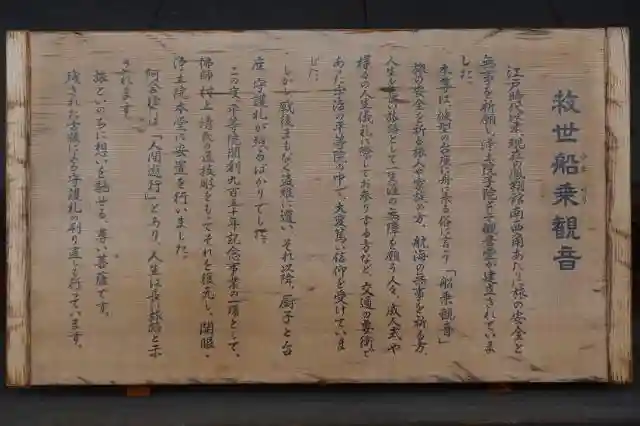 救世船乗観音
ふな のり
江戸時代以来、現在の鳳翔館南西角あたりに旅の安全と
無事を祈願し、浄土院子院として観音堂が建立されていま
した。
本尊は、波型の台座に舟に乗る俗に言う「船乗観音」
旅の安全を祈る旅人や家族の方、航海の無事を祈る方、
人生を長い旅路として一生涯の無障を願う人々、成人式や
様々の人生儀礼に際してお参りする方など、交通の要衝で
あった宇治の平等院の中で、大変篤い信仰を受けていま
した。
しかし戦後まもなく盗難に遭い、それ以降、厨子と台
座、守護札が残るばかりでした。
この度、平等院開創九百五十年記念事業の一環として、
佛師村上清氏の遺技によりもってそれを復元し、開眼・
浄土院本堂に安置を行いました。
阿含経は「人間遊行」とあり、人生は長い旅路と示
されます。
旅といのちに想いを馳せる、尊い菩薩です。
残された古板による守護札の刷り直しも行っています。